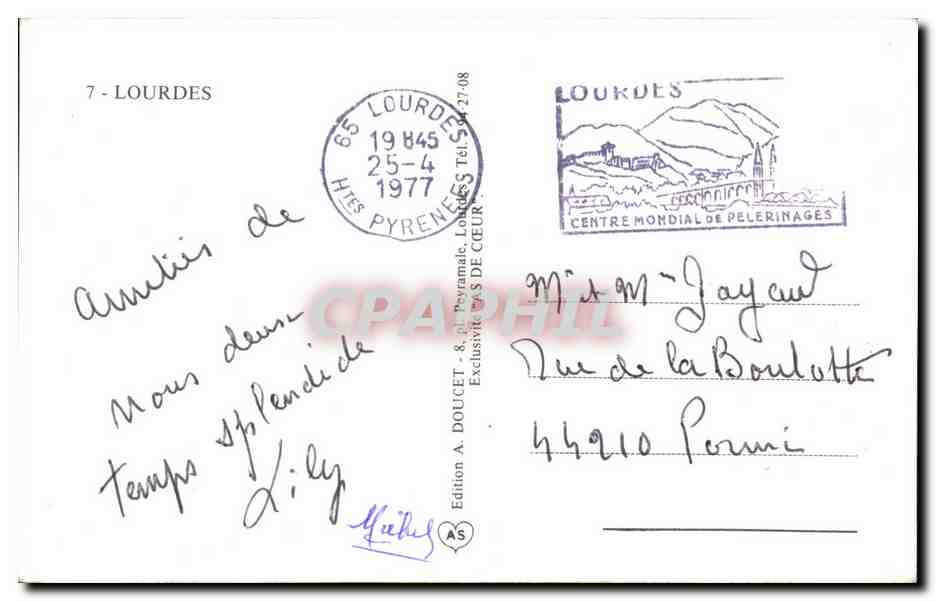 7 - LOURDES
65 LOURDES
19 H45
25-4
1977
Htes PYRENEES
LOURDES
CENTRE MONDIAL DE PELERINAGES
amitiés de
nous deux
temps splendide
Lily
Michel
Edition A. DOUCET - 8, pl. Peyramale, Lourdes - Tél. 94-27-08
Exclusivité "AS DE CŒUR"
AS
Mr et Mme Jayaud
Rue de la Boulotte
44210 Pornic
CPAPHIL